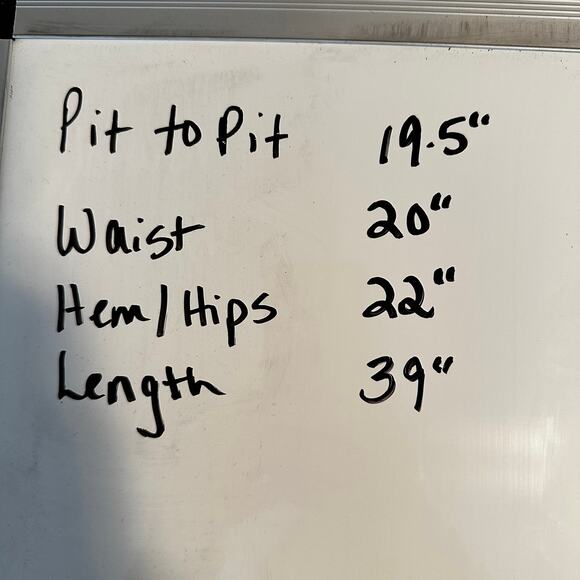 Pit to Pit 19.5"
Waist 20"
Hem/Hips 22"
Length 39"